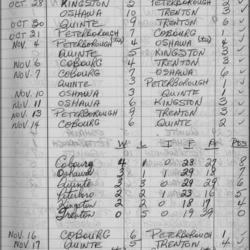 OCT 28 KINGSTON 2 PETERBOROUGH
OSHAWA 10 TRENTON
OCT 20 QUINTE TRENTON 6
OCT 21 PETERBOROUGH 7 COBOURG 1
NOV. 4 PETERBOROUGH 4 OSHAWA 4
QUINTE 5 KINGSTON 3
NOV 6 COBOURG 4 TRENTON 3
NOV 7 COBOURG 7 OSHAWA 6
QUINTE PETERBOROUGH 1
NOV. 10 OSHAWA 3 QUINTE 1
NOV. 11 OSHAWA 6 KINGSTON 3
NOV. 13 PETERBOROUGH 9 TRENTON 3
NOV. 14 COBOURG 6 QUINTE 2
W L T F A PTS
Cobourg 4 1 28 27 8
Oshawa 3 1 1 29 18 7
Quinte 3 3 0 29 29
2 2 23 16 5
Kingston 2 2 0 18 17 4
Trenton 0 5 19 39
NOV. 16 COBOURG 6 PETERBOROUGH
NOV. 17 QUINTE 5 TRENTON